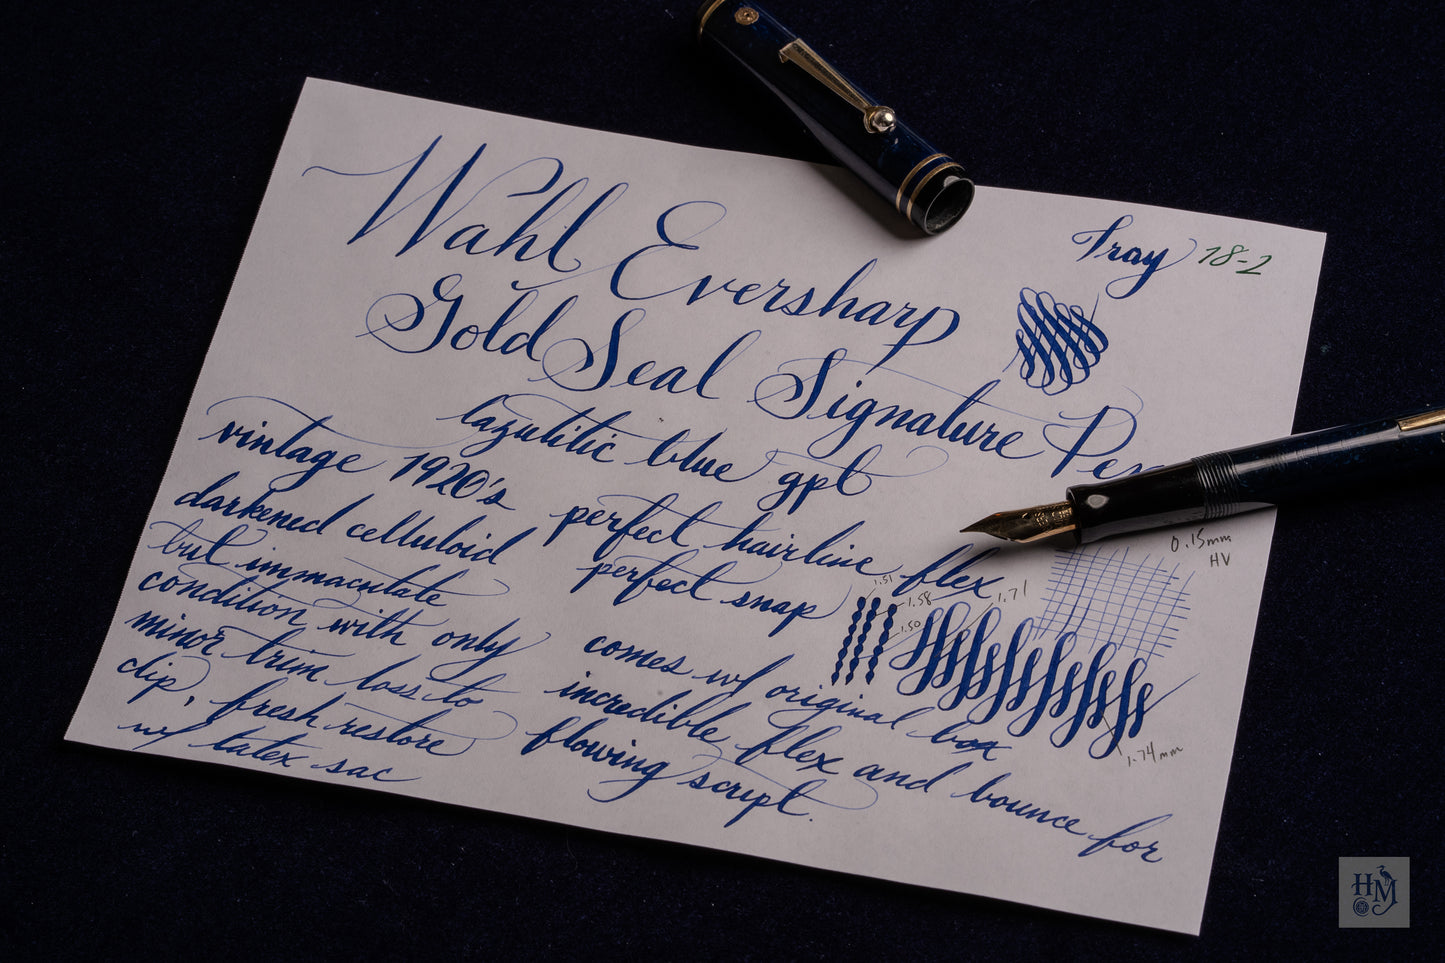 Wahl Eversharp
Gold Seal Signature Pen
Tray 18-2
lazulitic blue gpt
vintage 1920's
darkened celluloid
but immaculate
condition with only
minor trim loss to
clip, fresh restore
w/ latex sac
perfect hairline flex
perfect snap
comes w/ original box
incredible flex and bounce for
flowing script.
0.15mm
HV
1.51
1.58
1.71
1.50
1.74mm
HM